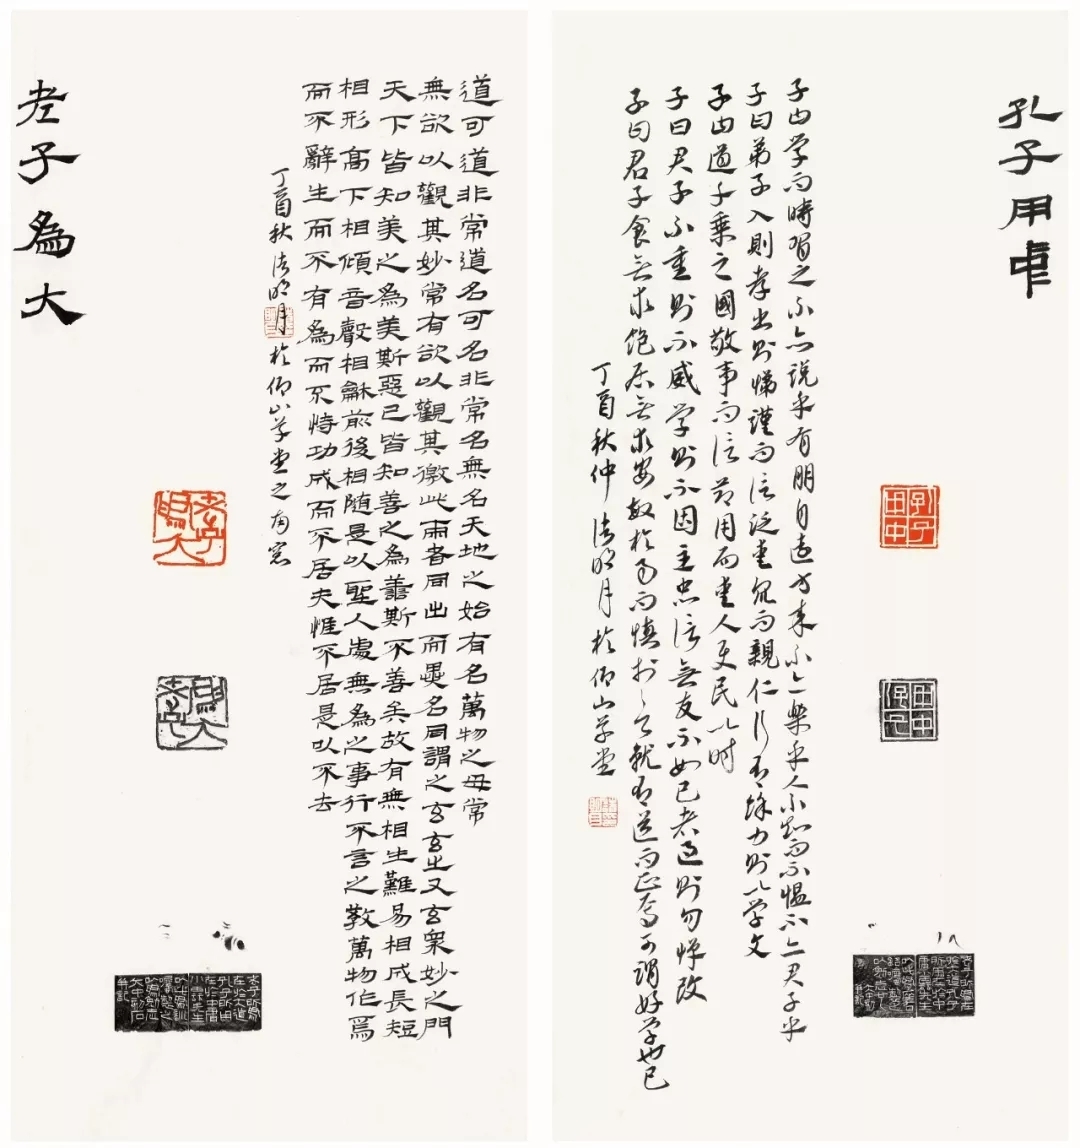 孔子用中
子曰学而時習之不亦説乎有朋自遠方來不亦樂乎人不知而不愠不亦君子乎
子曰弟子入則孝出則悌謹而信泛愛衆而親仁行有餘力則以学文
子曰道千乘之國敬事而信節用而愛人使民以時
子曰君子不重則不威学則不固主忠信無友不如已者過則勿憚改
子曰君子食無求飽居無求安敏於事而慎於言就有道而正焉可謂好学也已
丁酉秋仲 明月於仰山学堂
孔子
用中
老子為大
道可道非常道名可名非常名無名天地之始有名萬物之母常
無欲以觀其妙常有欲以觀其徼此兩者同出而異名同謂之玄玄之又玄衆妙之門
天下皆知美之為美斯惡已皆知善之為善斯不善矣故有無相生難易相成長短
相形高下相傾音聲相龢前後相随是以聖人處無為之事行不言之教萬物作焉
而不辭生而不有為而不恃功成而不居夫惟不居是以不去
丁酉秋 明月於仰山学堂之南窓
老子
為大